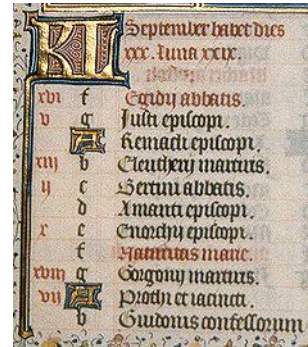 KL September habet dies
xxx. luna xxix.
xvi f Egidij abbatis.
v g Justi episcopi.
A Remacli episcopi.
xiij b Eleutherij martiris.
ij c Bertini abbatis.
d Amanti episcopi.
x e Enorchij episcopi.
f Natiuitas marie.
xviij g Gorgonij martiris.
vij A Prothi et iacincti.
b Guidonis confessorum